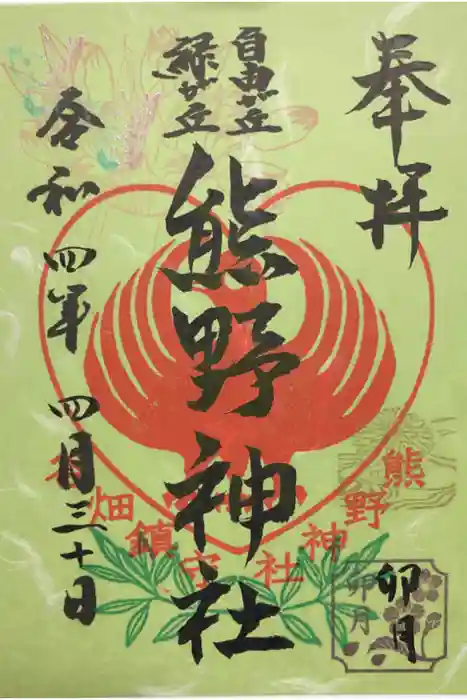 奉拝
自由が丘
緑が丘
熊野神社
令和四年四月三十日
熊野神社
守
鎮
畑
卯月
卯月